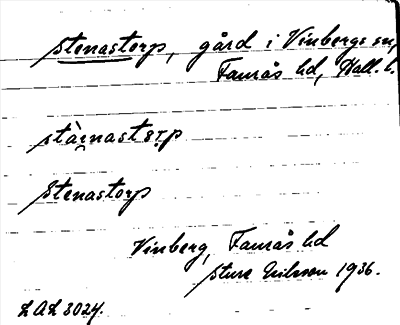 stenastorp, gård i Vinbergs sn,
Faurås hd, Hall. l.
stenastorp
Vinberg, Faurås hd
Sture Nilsson 1936.
LAL 3024.